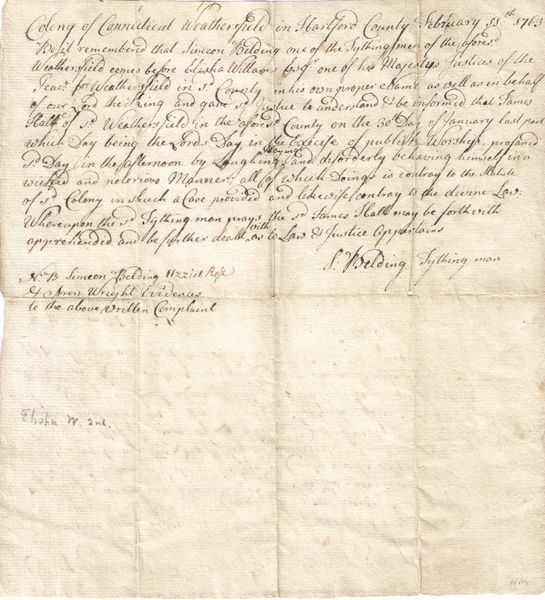 Colony of Connecticut Weathersfield in Hartford County February 11th 1763
Be it remembered that Simeon Belding one of the Tythingmen of the aforesd
Weathersfield comes before Elisha Williams Esqr one of his Majestys Justices of the
Peace for Weathersfield in sd County in his own proper Name as well as in behalf
of our Lord the King and gave sd Justice to understand & be informed that James
Hall of sd Weathersfield in the aforesd County on the 30 Day of January last past
which Day being the Lords Day in the Excise of publick Worship, profaned
sd Day in the afternoon by Laughing and disorderly behaving himself in a
wicked and notorious Manner, all of which Doings is contray to the Statute
of sd Colony in shuch a Case provided and likewise contray to the divine Law
Whereupon the sd Tything man prays the sd James Hall may be forth with
apprehended and be further dealt with as to Law & Justice appertains
S. Belding Tything man
N B Simeon Belding Uzziel Rose
& Aron Wright Evidences
to the above, written Complaint
Elisha W. 2nd.